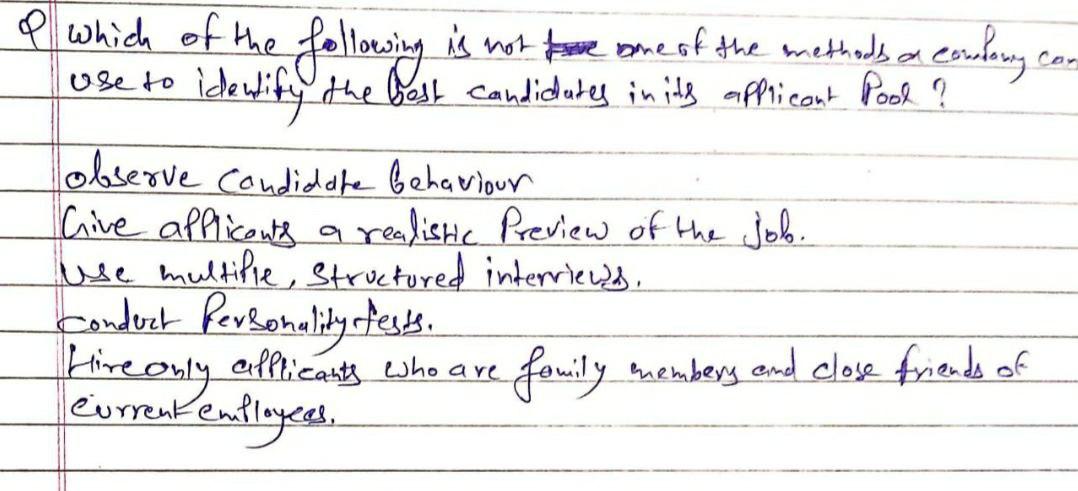 Q which of the following is not one of the methods a company can
use to identify the best candidates in its applicant Pool ?
observe Candidate behaviour
Give applicants a realistic Preview of the job.
Use multiple, Structured interviews.
Conduct Personality tests.
Hire only applicants who are family members and close friends of
current employees.